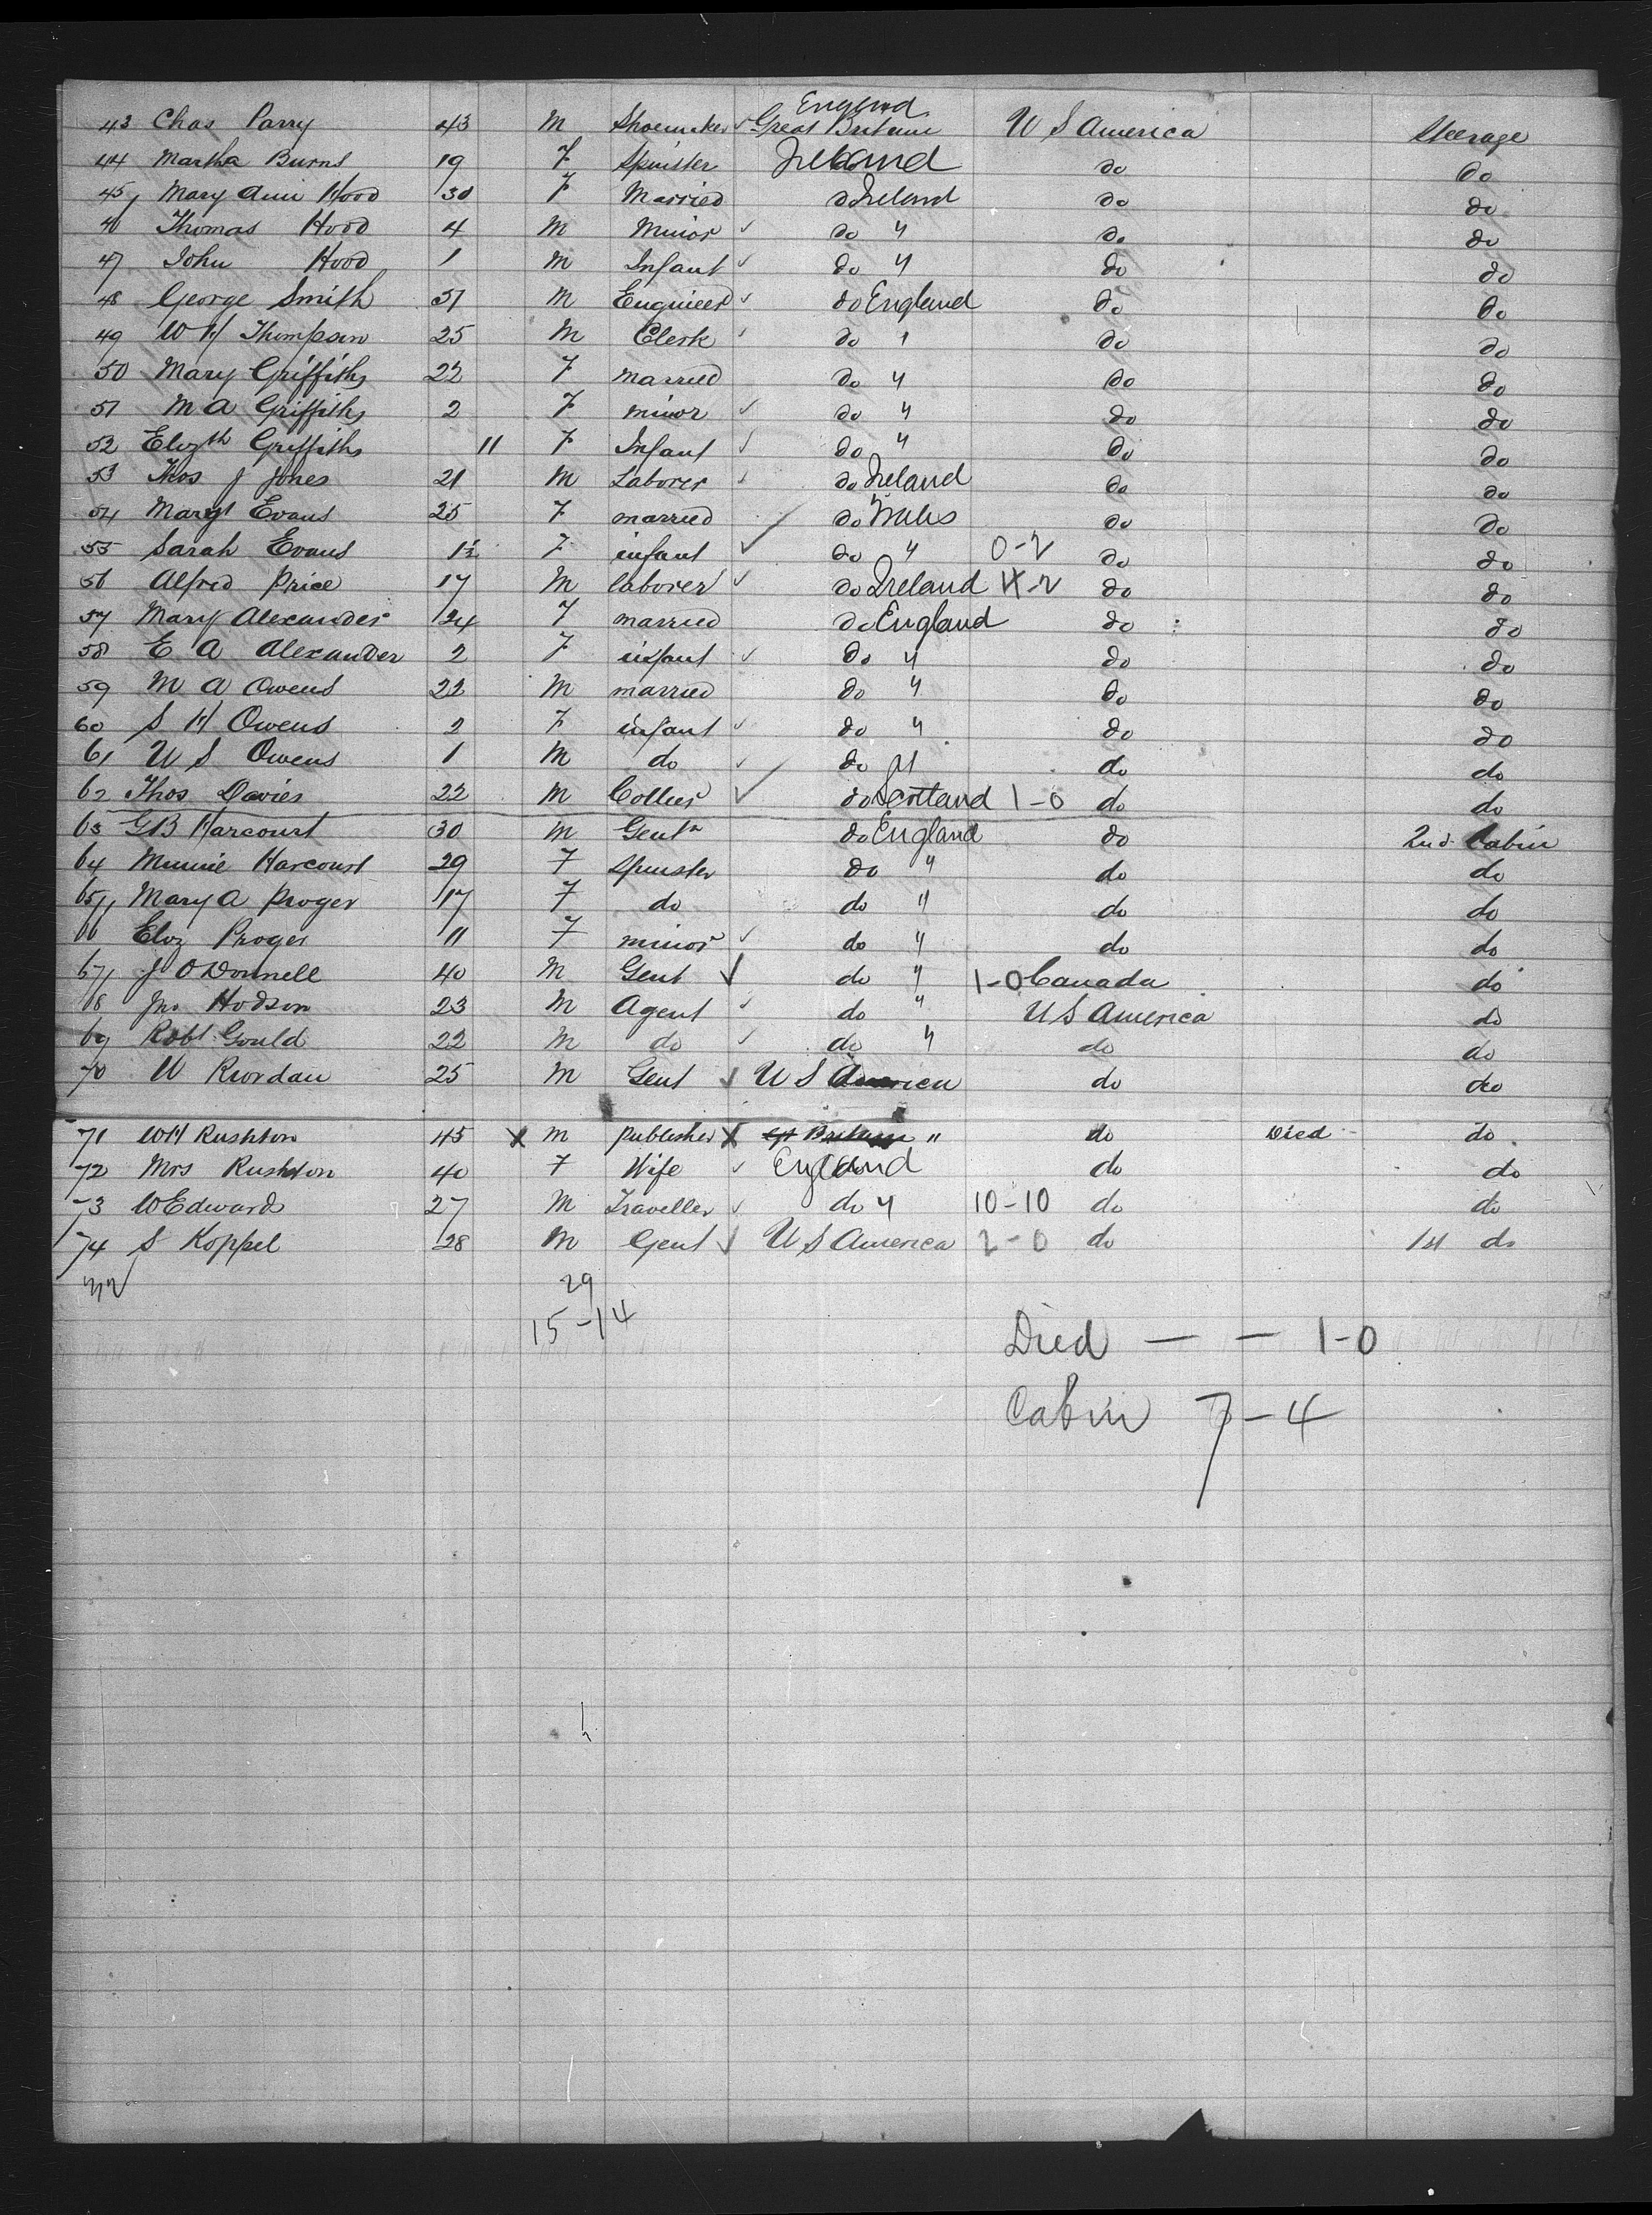 England
43 Chas Parry 43 M Shoemaker ✓ Great Britain U S America Steerage
44 Martha Burns 19 F Spinster Ireland do do
45 Mary Ann Hood 30 F Married do Ireland do do
46 Thomas Hood 4 M Minor ✓ do " do do
47 John Hood 1 M Infant ✓ do " do do
48 George Smith 31 M Engineer ✓ do England do do
49 W H Thompson 25 M Clerk ✓ do " do do
50 Mary Griffiths 22 F married do " do do
51 M A Griffiths 2 F minor ✓ do " do do
52 Elizth Griffiths 11 F Infant ✓ do " do do
53 Thos J Jones 21 M Laborer ✓ do Ireland do do
54 Margt Evans 25 F married do Wales do do
55 Sarah Evans 1½ F infant ✓ do " 0-2 do do
56 Alfred Price 17 M laborer ✓ do Ireland 4-2 do do
57 Mary Alexander 24 F married do England do do
58 E A Alexander 2 F infant ✓ do " do do
59 M A Owens 22 M married do " do do
60 S H Owens 2 F infant ✓ do " do do
61 U S Owens 1 M do ✓ do " do do
62 Thos Davies 22 M Collier ✓ do Scotland 1-0 do do
63 G B Harcourt 30 M Gentn do England do 2nd Cabin
64 Minnie Harcourt 29 F Spinster do " do do
65 Mary A Proger 17 F do do " do do
66 Eliz Proger 11 F minor ✓ do " do do
67 J O Donnell 40 M Gent ✓ do " 1-0 Canada do
68 Jno Hodson 23 M Agent ✓ do " U S America do
69 Robt Gould 22 M do ✓ do " do do
70 W Riordan 25 M Gent ✓ U S America do do
71 W H Rushton 45 X M publisher X Gt Britain " do Died do
72 Mrs Rushton 40 F Wife ✓ England do do
73 W Edwards 27 M Traveller ✓ do " 10-10 do do
74 S Koppel 28 M Gent ✓ U S America 2-0 do 1st do
29
15-14
Died — — 1-0
Cabin 7-4